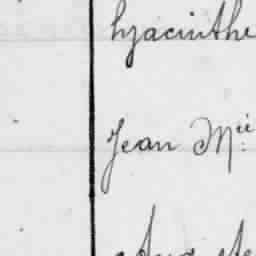 hyacinthe
Jean Mie